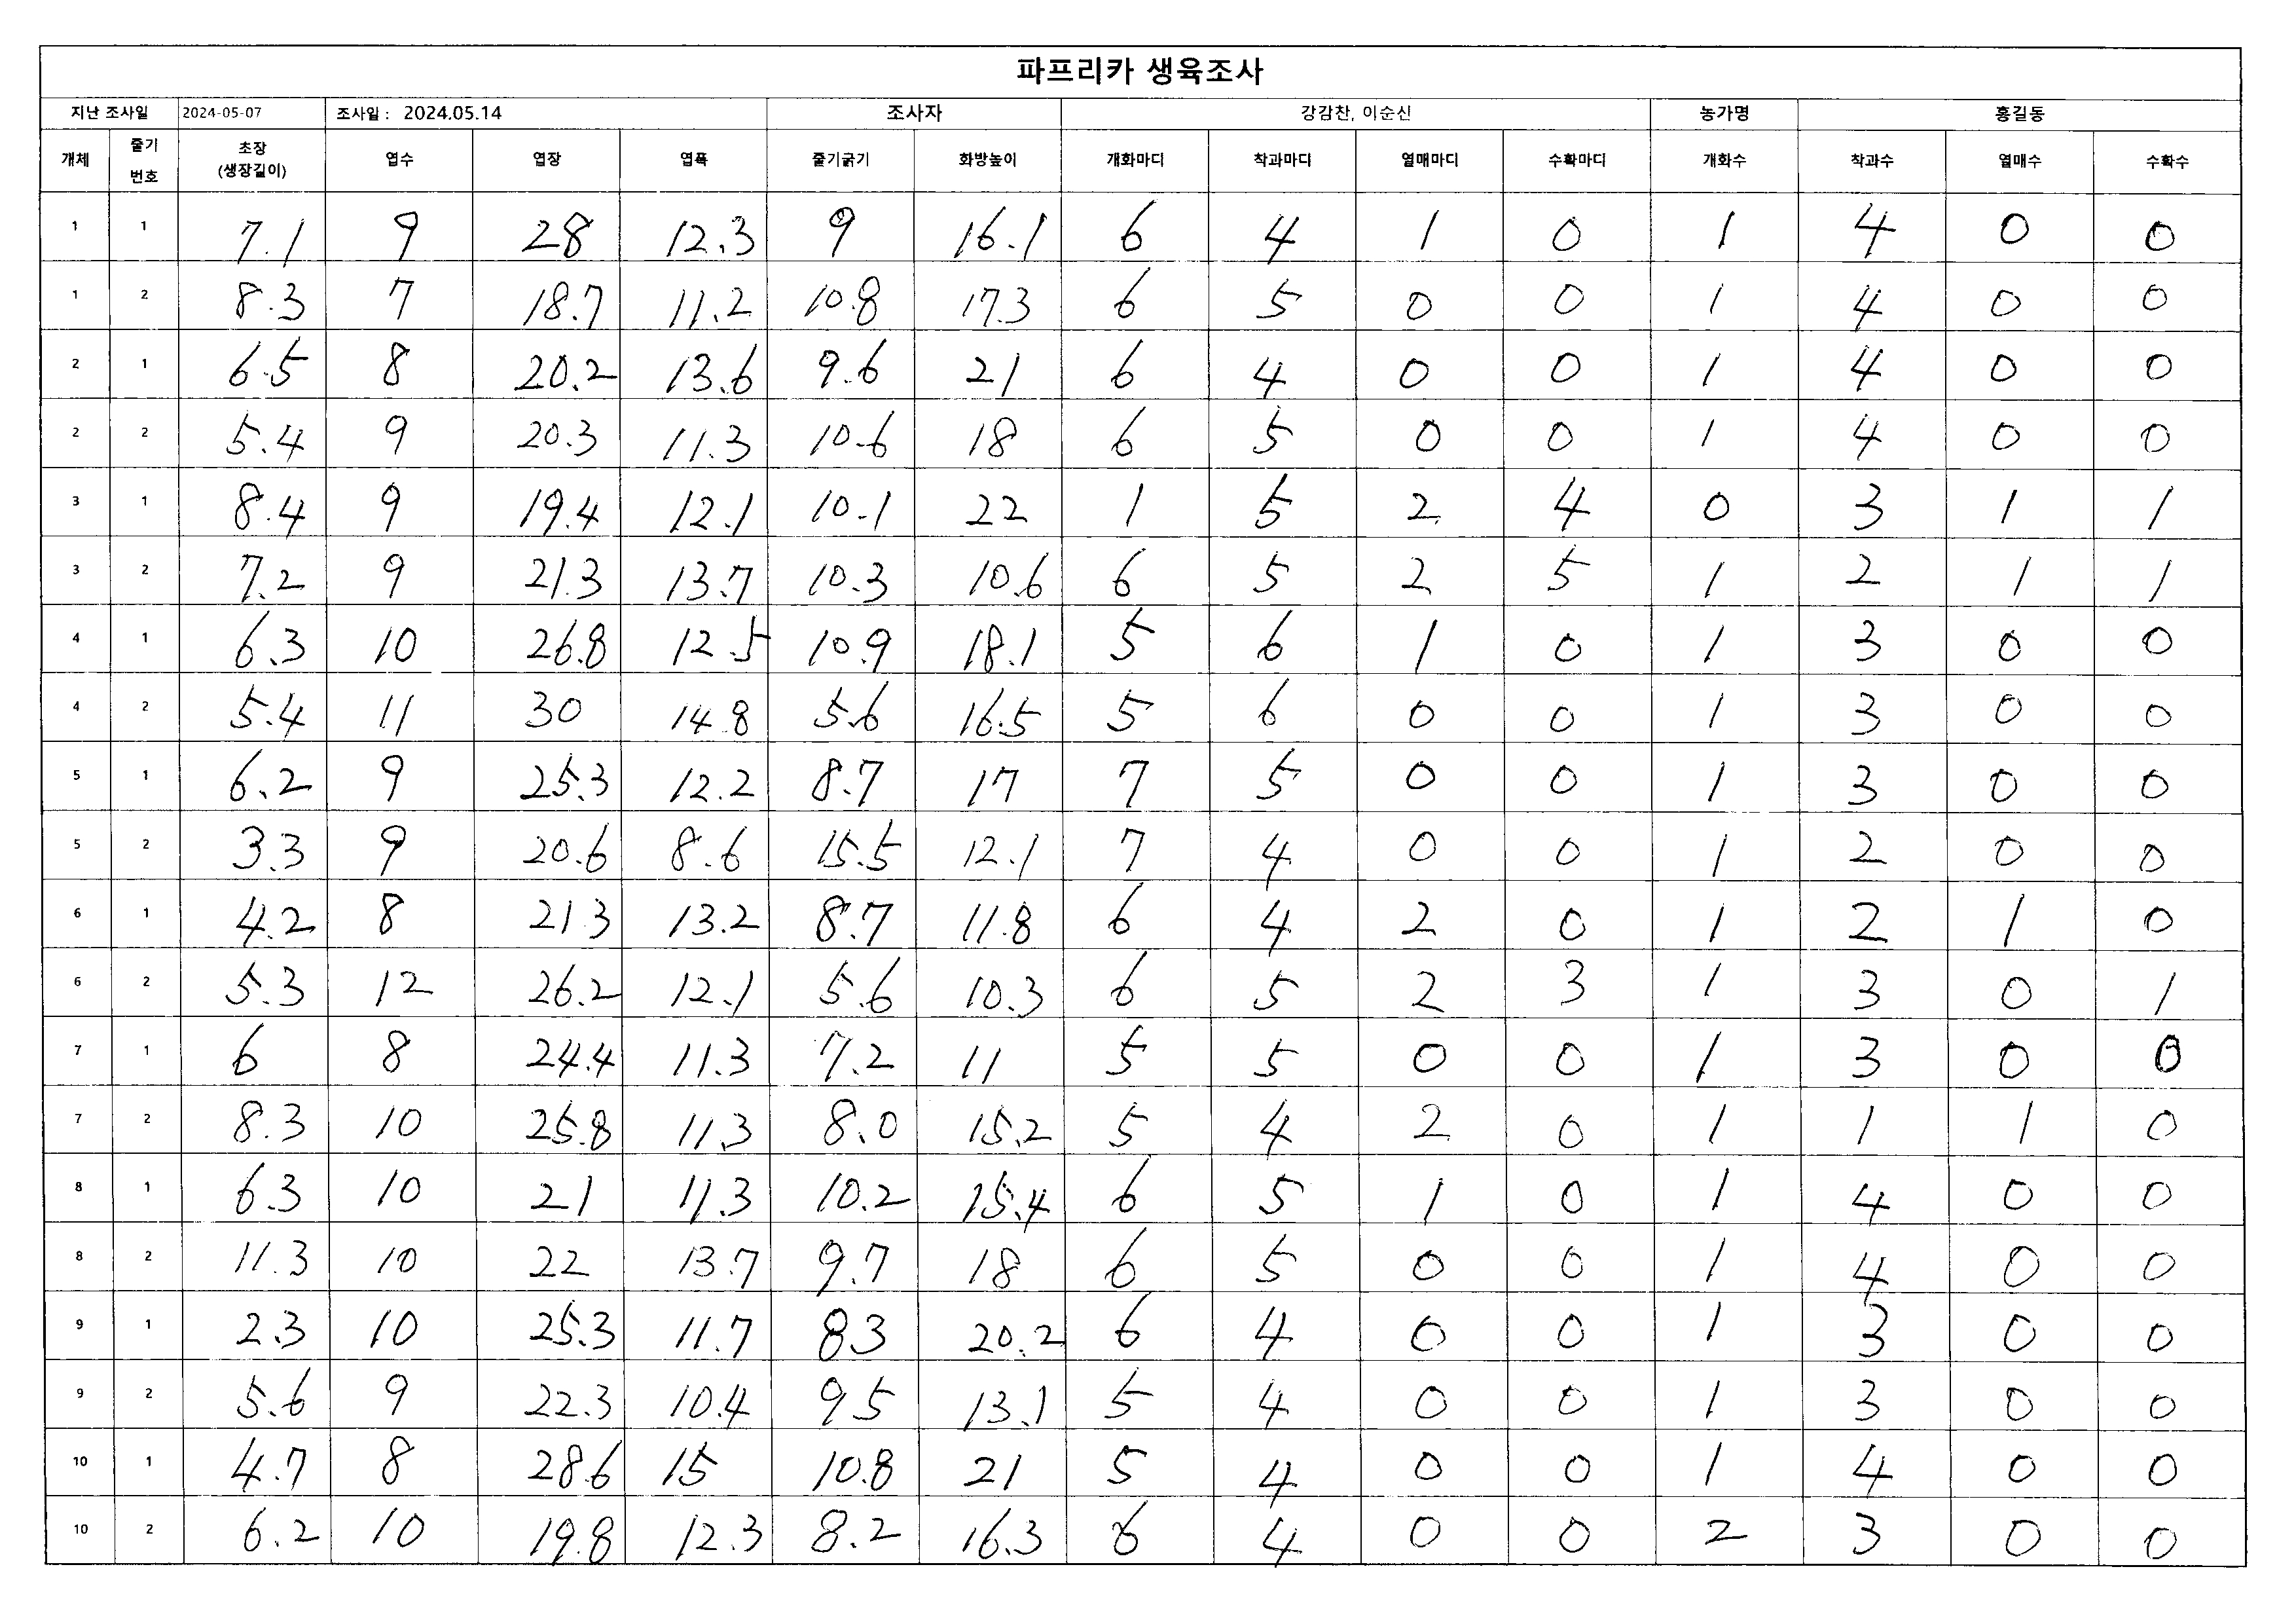 파프리카 생육조사
지난 조사일 2024-05-07 조사일 : 2024.05.14 조사자 강감찬, 이순신 농가명 홍길동
개체 줄기 번호 초장 (생장길이) 엽수 엽장 엽폭 줄기굵기 화방높이 개화마디 착과마디 열매마디 수확마디 개화수 착과수 열매수 수확수
1 1 7.1 9 28 12.3 9 16.1 6 4 1 0 1 4 0 0
1 2 8.3 7 18.7 11.2 10.8 17.3 6 5 0 0 1 4 0 0
2 1 6.5 8 20.2 13.6 9.6 21 6 4 0 0 1 4 0 0
2 2 5.4 9 20.3 11.3 10.6 18 6 5 0 0 1 4 0 0
3 1 8.4 9 19.4 12.1 10.1 22 1 5 2 4 0 3 1 1
3 2 7.2 9 21.3 13.7 10.3 10.6 6 5 2 5 1 2 1 1
4 1 6.3 10 26.8 12.5 10.9 18.1 5 6 1 0 1 3 0 0
4 2 5.4 11 30 14.8 5.6 16.5 5 6 0 0 1 3 0 0
5 1 6.2 9 25.3 12.2 8.7 17 7 5 0 0 1 3 0 0
5 2 3.3 9 20.6 8.6 15.5 12.1 7 4 0 0 1 2 0 0
6 1 4.2 8 21.3 13.2 8.7 11.8 6 4 2 0 1 2 1 0
6 2 5.3 12 26.2 12.1 5.6 10.3 6 5 2 3 1 3 0 1
7 1 6 8 24.4 11.3 7.2 11 5 5 0 0 1 3 0 0
7 2 8.3 10 25.8 11.3 8.0 15.2 5 4 2 0 1 1 1 0
8 1 6.3 10 21 11.3 10.2 15.4 6 5 1 0 1 4 0 0
8 2 11.3 10 22 13.7 9.7 18 6 5 0 0 1 4 0 0
9 1 2.3 10 25.3 11.7 83 20.2 6 4 0 0 1 3 0 0
9 2 5.6 9 22.3 10.4 9.5 13.1 5 4 0 0 1 3 0 0
10 1 4.7 8 28.6 15 10.8 21 5 4 0 0 1 4 0 0
10 2 6.2 10 19.8 12.3 8.2 16.3 6 4 0 0 2 3 0 0